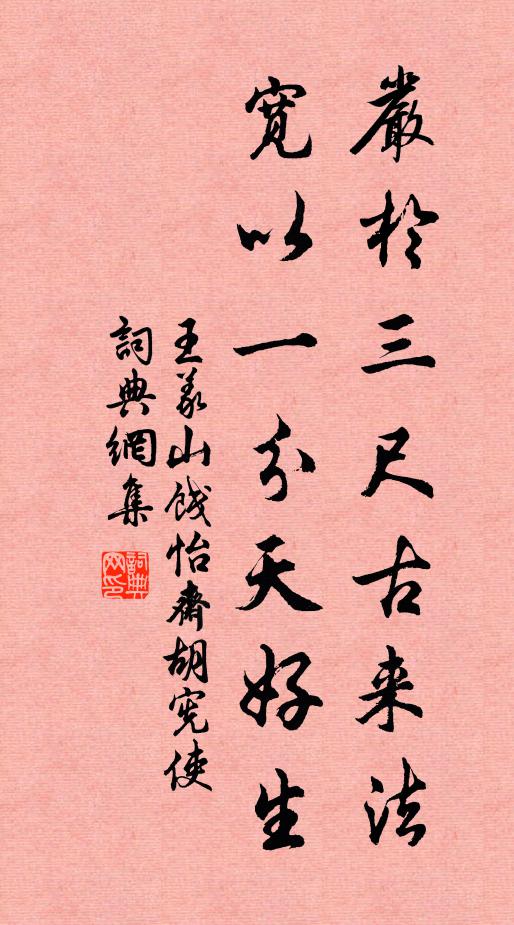 嚴於三尺古来法
寬以一分天好生
王義山餞怡齋胡宪使
詞典網集
詞典網印